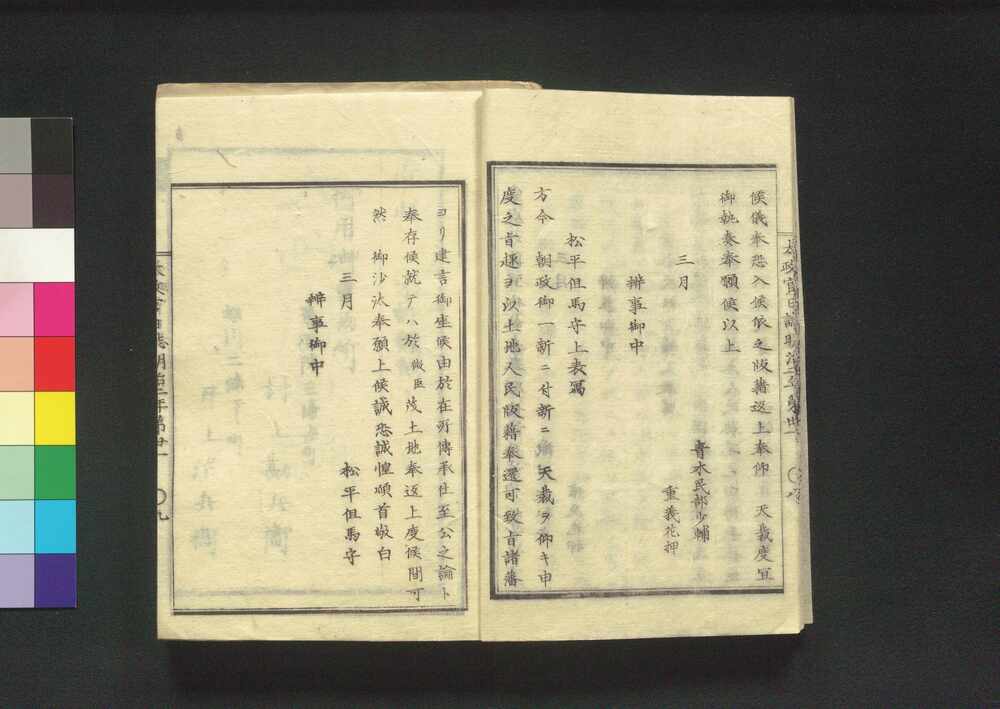 候儀奉恐入候依之版籍返上奉仰　天裁度宜
御執奏奉願候以上
三月
青木民部少輔
重義花押
辨事御中
松平但馬守上表寫
方今　朝政御一新ニ付新ニ　天裁ヲ仰キ申
度之旨趣ヲ以土地人民版籍奉還可致旨諸藩
太政官日誌明治二年第卅一
ヨリ建言御座候由於在所傳承仕至公之論ト
奉存候就テハ於微臣茂土地奉返上度候間可
然　御沙汰奉願上候誠恐誠惶頓首敬白
三月
松平但馬守
辨事御中
〇九